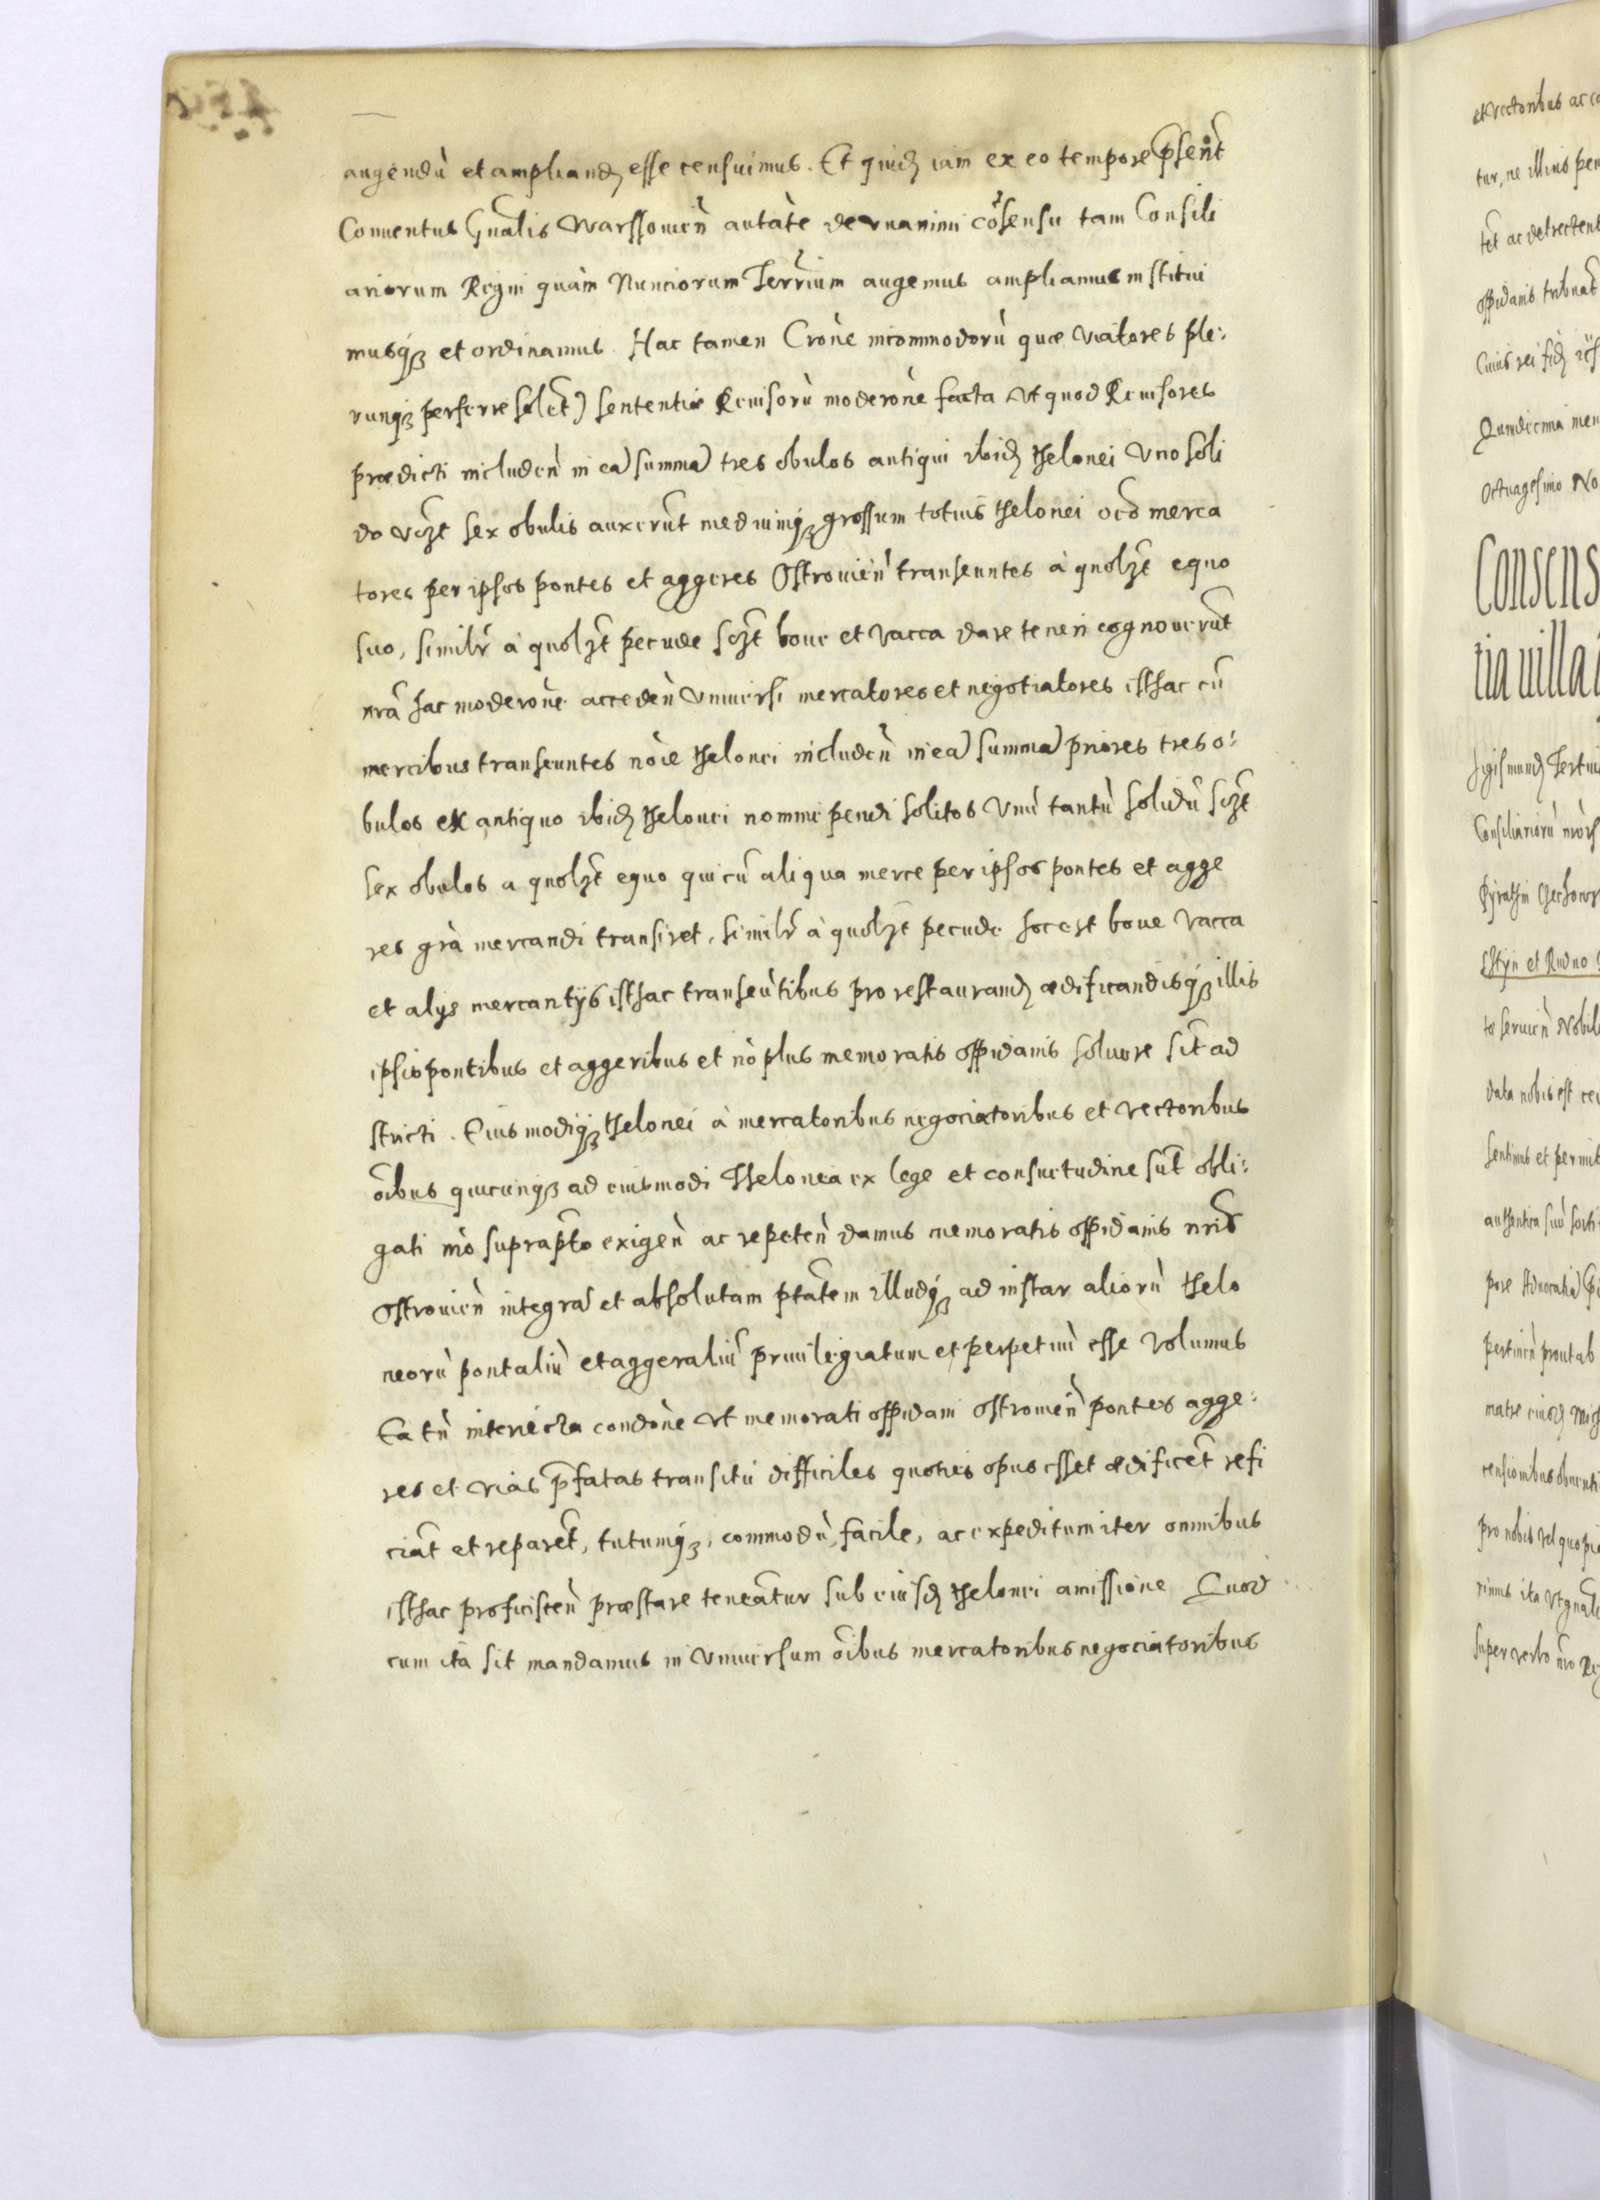 augendù et ampliand esse censuimus. Et quid iam ex eo tempore psent
Conuentus Gnalis Warssouien autàte de vnanimi cosensu tam Consili
ariorum Regni quàm Nunciorum Terrium augemus ampliamus institui
musq et ordinamus. Hac tamen Crone incommodorù quæ viatores ple:
runq perferre solet sententiæ Reuisorù moderone facta vt quod Reuisores
prædicti includen in ea summa tres obulos antiqui ibid thelonei vno soli
do vczt sex obulis auxerunt mediumq grossum totius thelonei ocd merca
tores per ipsos pontes et aggeres Ostrouien transeuntes à quolzt equo
suo, similr à quolzt pecude sczt boue et vacca dare teneri cognouerunt
nrâ hac moderone acceden vniuersi mercatores et negotiatores isthac cu
mercibus transeuntes nòie thelonei includen in ea summa priores tres o:
bulos ex antiquo ibid thelonei nomine pendi solitos vnù tantù solidù sczt
sex obulos a quolzt equo qui cu aliqua merce per ipsos pontes et agge
res grà mercandi transiret, similr à quolzt pecude hoc est boue vacca
et alijs mercantijs isthac transeùtibus pro restaurand ædificandisq illis
ipsis pontibus et aggeribus et nò plus memoratis oppidanis soluere sint ad
stricti. Eiusmodiq thelonei à mercatoribus negociatoribus et vectoribus
oibus quicunq ad eiusmodi Thelonea ex lege et consuetudine sunt obli:
gati mò suprapto exigen ac repeten damus memoratis oppidanis nris
Ostrouien integra et absolutam ptatem illudq ad instar aliorù thelo
neorù pontaliù et aggeraliu priuilegiatum et perpetuù esse volumus
Ea tn interiecta condone vt memorati oppidani ostrouien pontes agge:
res et vias pfatas transitu difficiles quoties opus esset ædificet refi
ciat et reparet, tutumq, commodù, facile, ac expeditum iter omnibus
isthac proficiscen præstare teneatur sub eiusd thelonei amissione Quod
cum ita sit mandamus in vniuersum oibus mercatoribus negociatoribus
et vectoribus ac
tur, ne illius
tet ac detrectent
oppidanis tribuat
Cuius rei fid
Quindecima
Octuagesimo
Consens
tia villa
Sigismund Tertiu
Consiliariorù
et Rudno
to seruien Nobil
data nobis est
sentimus et permit
authentica suù
pore Aduocatia
pertinen prout ab
matre eiusd
censionibus
pro nobis vel
rimus ita vt
super verbo nro